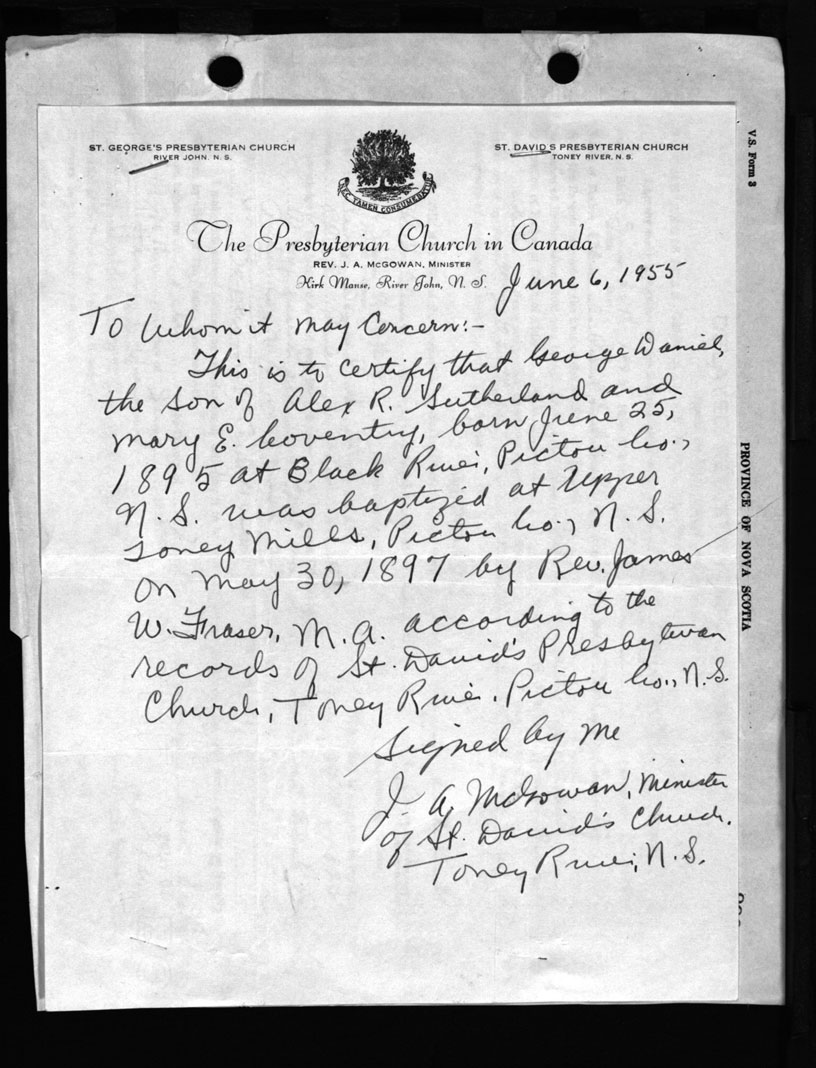 ST. GEORGE'S PRESBYTERIAN CHURCH
RIVER JOHN, N. S.
ST. DAVID'S PRESBYTERIAN CHURCH
TONEY RIVER, N. S.
NEC TAMEN CONSUMEBATUR
The Presbyterian Church in Canada
REV. J. A. McGOWAN, MINISTER
Kirk Manse, River John, N. S.
June 6, 1955
To Whom it May Concern:-
This is to certify that George Daniel,
the son of Alex R. Sutherland and
Mary E. Coventry, born June 25,
1895 at Black River, Pictou Co.,
N. S. was baptized at Upper
Toney Mills, Pictou Co., N. S.
on May 30, 1897 by Rev. James
W. Fraser, M. A. according to the
records of St. David's Presbyterian
Church, Toney River, Pictou Co., N. S.
Signed by me
J. A. McGowan, Minister
of St. David's Church.
Toney River, N. S.
V. S. Form 3
PROVINCE OF NOVA SCOTIA